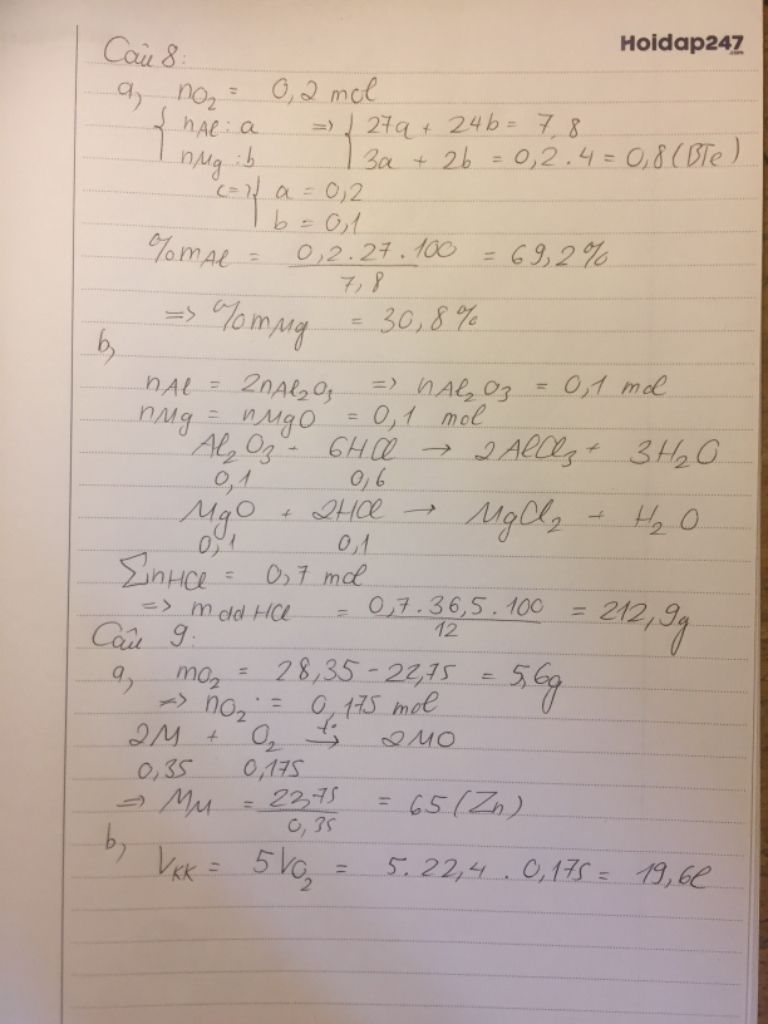 Hoidap247
.com
Câu 8:
a, nO₂ = 0,2 mol
{ nAl : a => { 27a + 24b = 7,8
nMg : b 3a + 2b = 0,2.4 = 0,8 (BTe)
<=> { a = 0,2
b = 0,1
%mAl = 0,2.27.100 / 7,8 = 69,2%
=> %mMg = 30,8%
b,
nAl = 2nAl₂O₃ => nAl₂O₃ = 0,1 mol
nMg = nMgO = 0,1 mol
Al₂O₃ + 6HCl → 2AlCl₃ + 3H₂O
0,1 0,6
MgO + 2HCl → MgCl₂ + H₂O
0,1 0,1
ΣnHCl = 0,7 mol
=> mddHCl = 0,7.36,5.100 / 12 = 212,9g
Câu 9:
a, mO₂ = 28,35 - 22,75 = 5,6g
=> nO₂ = 0,175 mol
2M + O₂ t°→ 2MO
0,35 0,175
=> MM = 22,75 / 0,35 = 65 (Zn)
b,
VKK = 5VO₂ = 5.22,4.0,175 = 19,6l